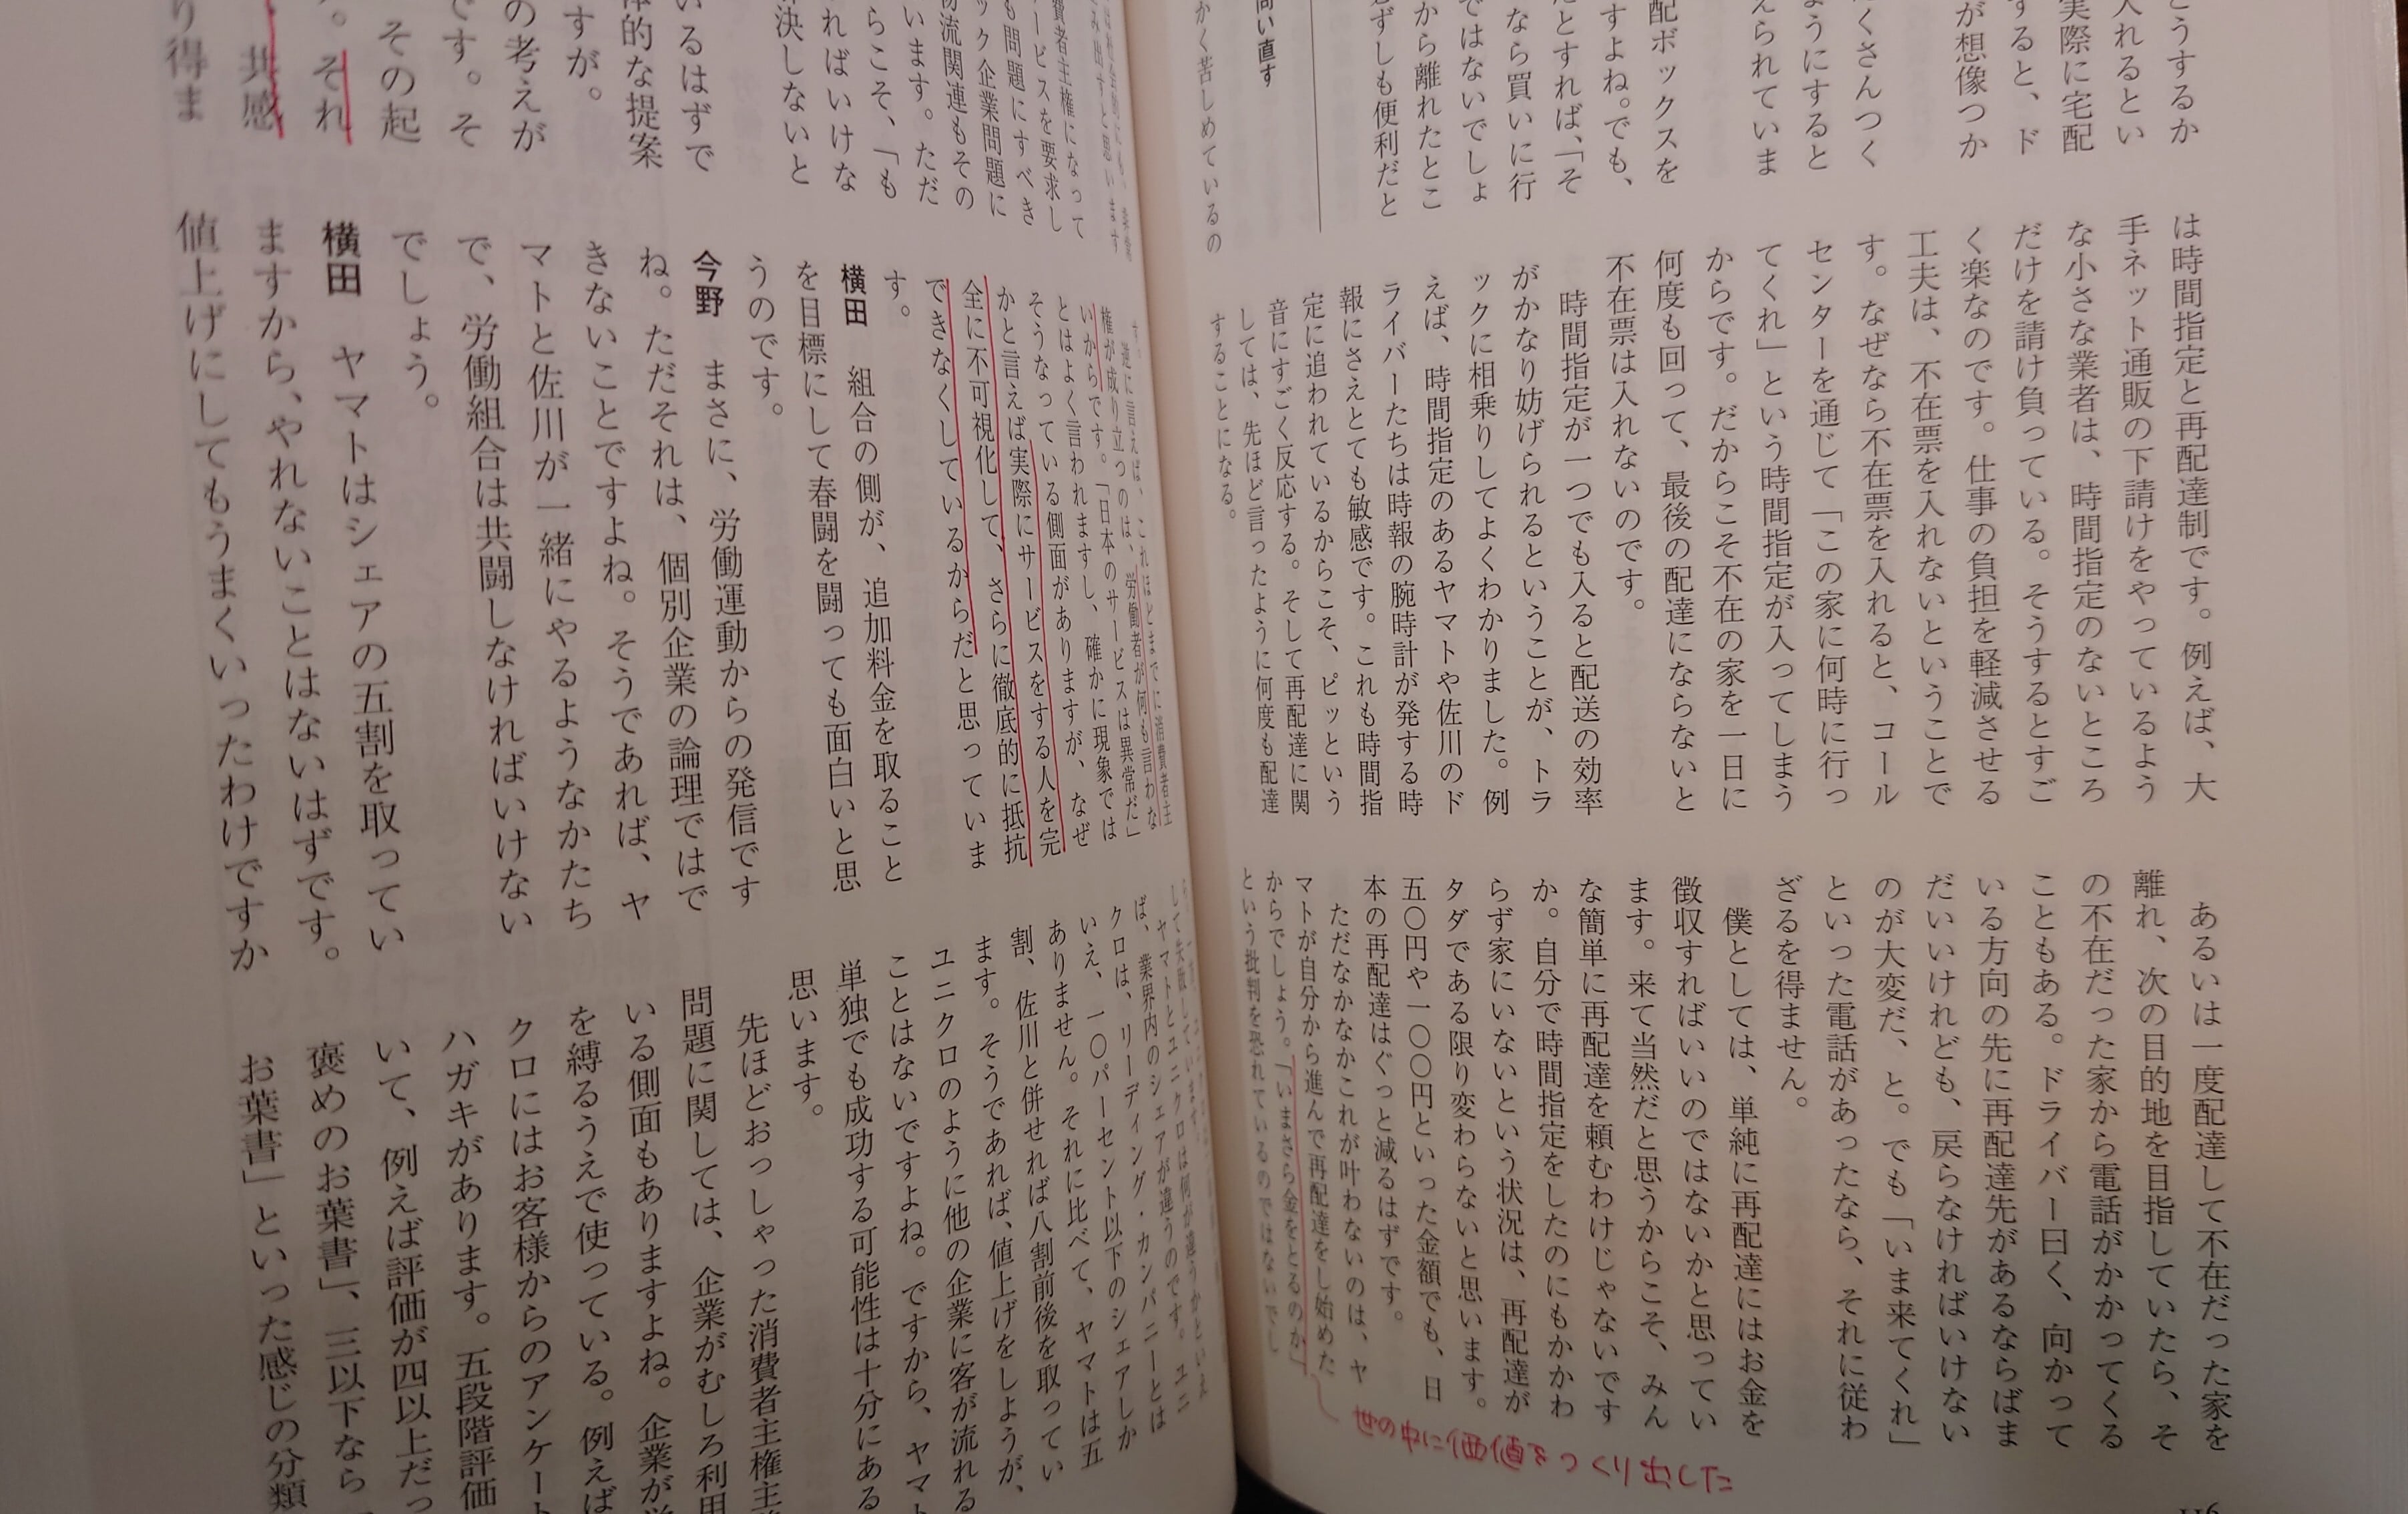 こうするか
入れるとい
実際に宅配
すると、ド
が想像つか
たくさんつく
ようにすると
えられていま
配ボックスを
すよね。でも、
だとすれば、「そ
なら買いに行
ではないでしょ
から離れたとこ
必ずしも便利だと
問い直す
かく苦しめているの
は時間指定と再配達制です。例えば、大
手ネット通販の下請けをやっているよう
な小さな業者は、時間指定のないところ
だけを請け負っている。そうするとすご
く楽なのです。仕事の負担を軽減させる
工夫は、不在票を入れないということで
す。なぜなら不在票を入れると、コール
センターを通じて「この家に何時に行っ
てくれ」という時間指定が入ってしまう
からです。だからこそ不在の家を一日に
何度も回って、最後の配達にならないと
不在票は入れないのです。
時間指定が一つでも入ると配送の効率
がかなり妨げられるということが、トラ
ックに相乗りしてよくわかりました。例
えば、時間指定のあるヤマトや佐川のド
ライバーたちは時報の腕時計が発する時
報にさえとても敏感です。これも時間指
定に追われているからこそ、ピッという
音にすごく反応する。そして再配達に関
しては、先ほど言ったように何度も配達
することになる。
あるいは一度配達して不在だった家を
離れ、次の目的地を目指していたら、そ
の不在だった家から電話がかかってくる
こともある。ドライバー曰く、向かって
いる方向の先に再配達先があるならばま
だいいけれども、戻らなければいけない
のが大変だ、と。でも「いま来てくれ」
といった電話があったなら、それに従わ
ざるを得ません。
僕としては、単純に再配達にはお金を
徴収すればいいのではないかと思ってい
ます。来て当然だと思うからこそ、みん
な簡単に再配達を頼むわけじゃないです
か。自分で時間指定をしたのにもかかわ
らず家にいないという状況は、再配達が
タダである限り変わらないと思います。
五〇円や一〇〇円といった金額でも、日
本の再配達はぐっと減るはずです。
ただなかなかこれが叶わないのは、ヤ
マトが自分から進んで再配達をし始めた
からでしょう。「いまさら金をとるのか」
という批判を恐れているのではないでし
世の中に価値をつくり出した
116
費者主権になって
ービスを要求し
も問題にすべき
ック企業問題に
物流関連もその
います。ただ
らこそ、「も
ればいけな
決しないと
いるはずで
体的な提案
すが。
の考えが
です。そ
その起
。それ
共感
り得ま
す。逆に言えば、これほどまでに消費者主
権が成り立つのは、労働者が何も言わな
いからです。「日本のサービスは異常だ」
とはよく言われますし、確かに現象では
そうなっている側面がありますが、なぜ
かと言えば実際にサービスをする人を完
全に不可視化して、さらに徹底的に抵抗
できなくしているからだと思っていま
す。
横田　組合の側が、追加料金を取ること
を目標にして春闘を闘っても面白いと思
うのです。
今野　まさに、労働運動からの発信です
ね。ただそれは、個別企業の論理ではで
きないことですよね。そうであれば、ヤ
マトと佐川が一緒にやるようなかたち
で、労働組合は共闘しなければいけない
でしょう。
横田　ヤマトはシェアの五割を取ってい
ますから、やれないことはないはずです。
値上げにしてもうまくいったわけですか
して失敗しています。
ヤマトとユニクロは何が違うかといえ
ば、業界内のシェアが違うのです。ユニ
クロは、リーディング・カンパニーとは
いえ、一〇パーセント以下のシェアしか
ありません。それに比べて、ヤマトは五
割、佐川と併せれば八割前後を取ってい
ます。そうであれば、値上げをしようが、
ユニクロのように他の企業に客が流れる
ことはないですよね。ですから、ヤマト
単独でも成功する可能性は十分にある
思います。
先ほどおっしゃった消費者主権主
問題に関しては、企業がむしろ利用
いる側面もありますよね。企業が
を縛るうえで使っている。例えば
クロにはお客様からのアンケート
ハガキがあります。五段階評価
いて、例えば評価が四以上だっ
褒めのお葉書」、三以下なら「
お葉書」といった感じの分類